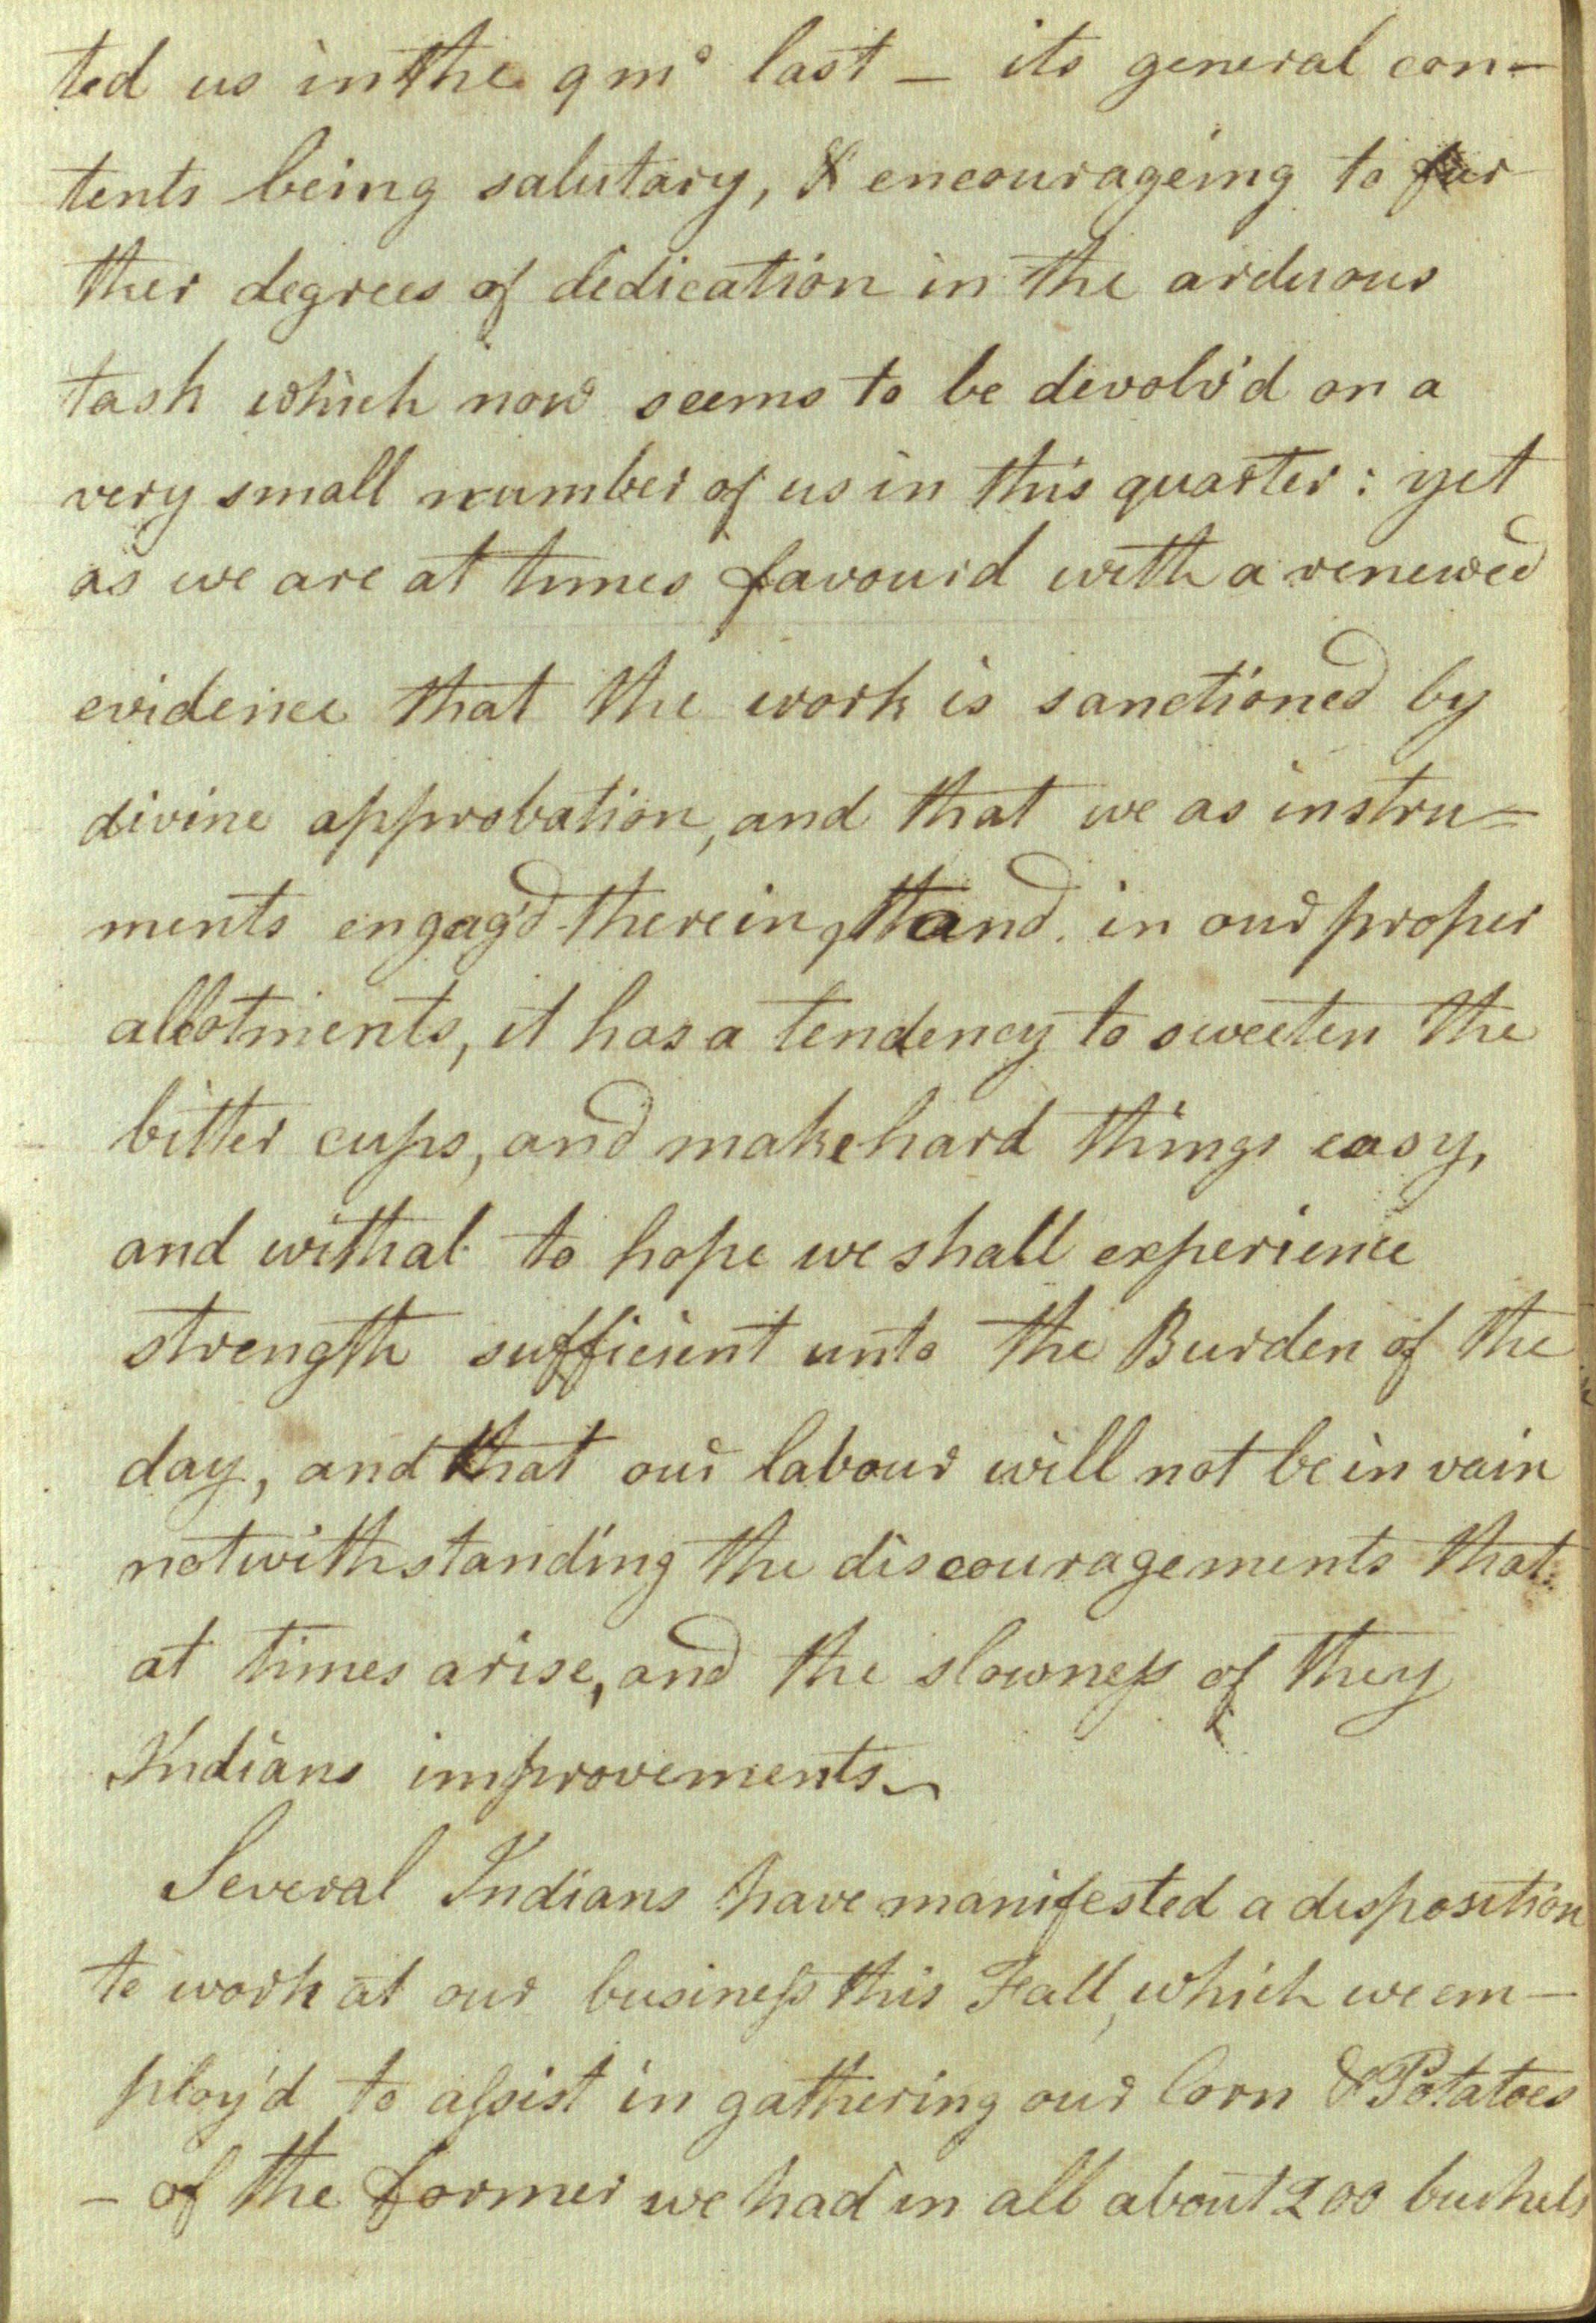 ted us in the 9 mo last — its general con-
tents being salutary, & encourageing to fur
ther degrees of dedication in the arduous
task which now seems to be devolv'd on a
very small number of us in this quarter: yet
as we are at times favour'd with a renewed
evidence that the work is sanctioned by
divine approbation, and that we as instru=
ments engag'd therein stand in our proper
allotments, it has a tendency to sweeten the
bitter cups, and make hard things easy,
and withal to hope we shall experience
strength sufficient unto the Burden of the
day, and that our labour will not be in vain
notwithstanding the discouragements that
at times arise, and the slowness of they
Indians improvements
Several Indians have manifested a disposition
to work at our business this Fall, which we em—
ploy'd to assist in gathering our Corn & Potatoes
— of the former we had in all about 200 bushels